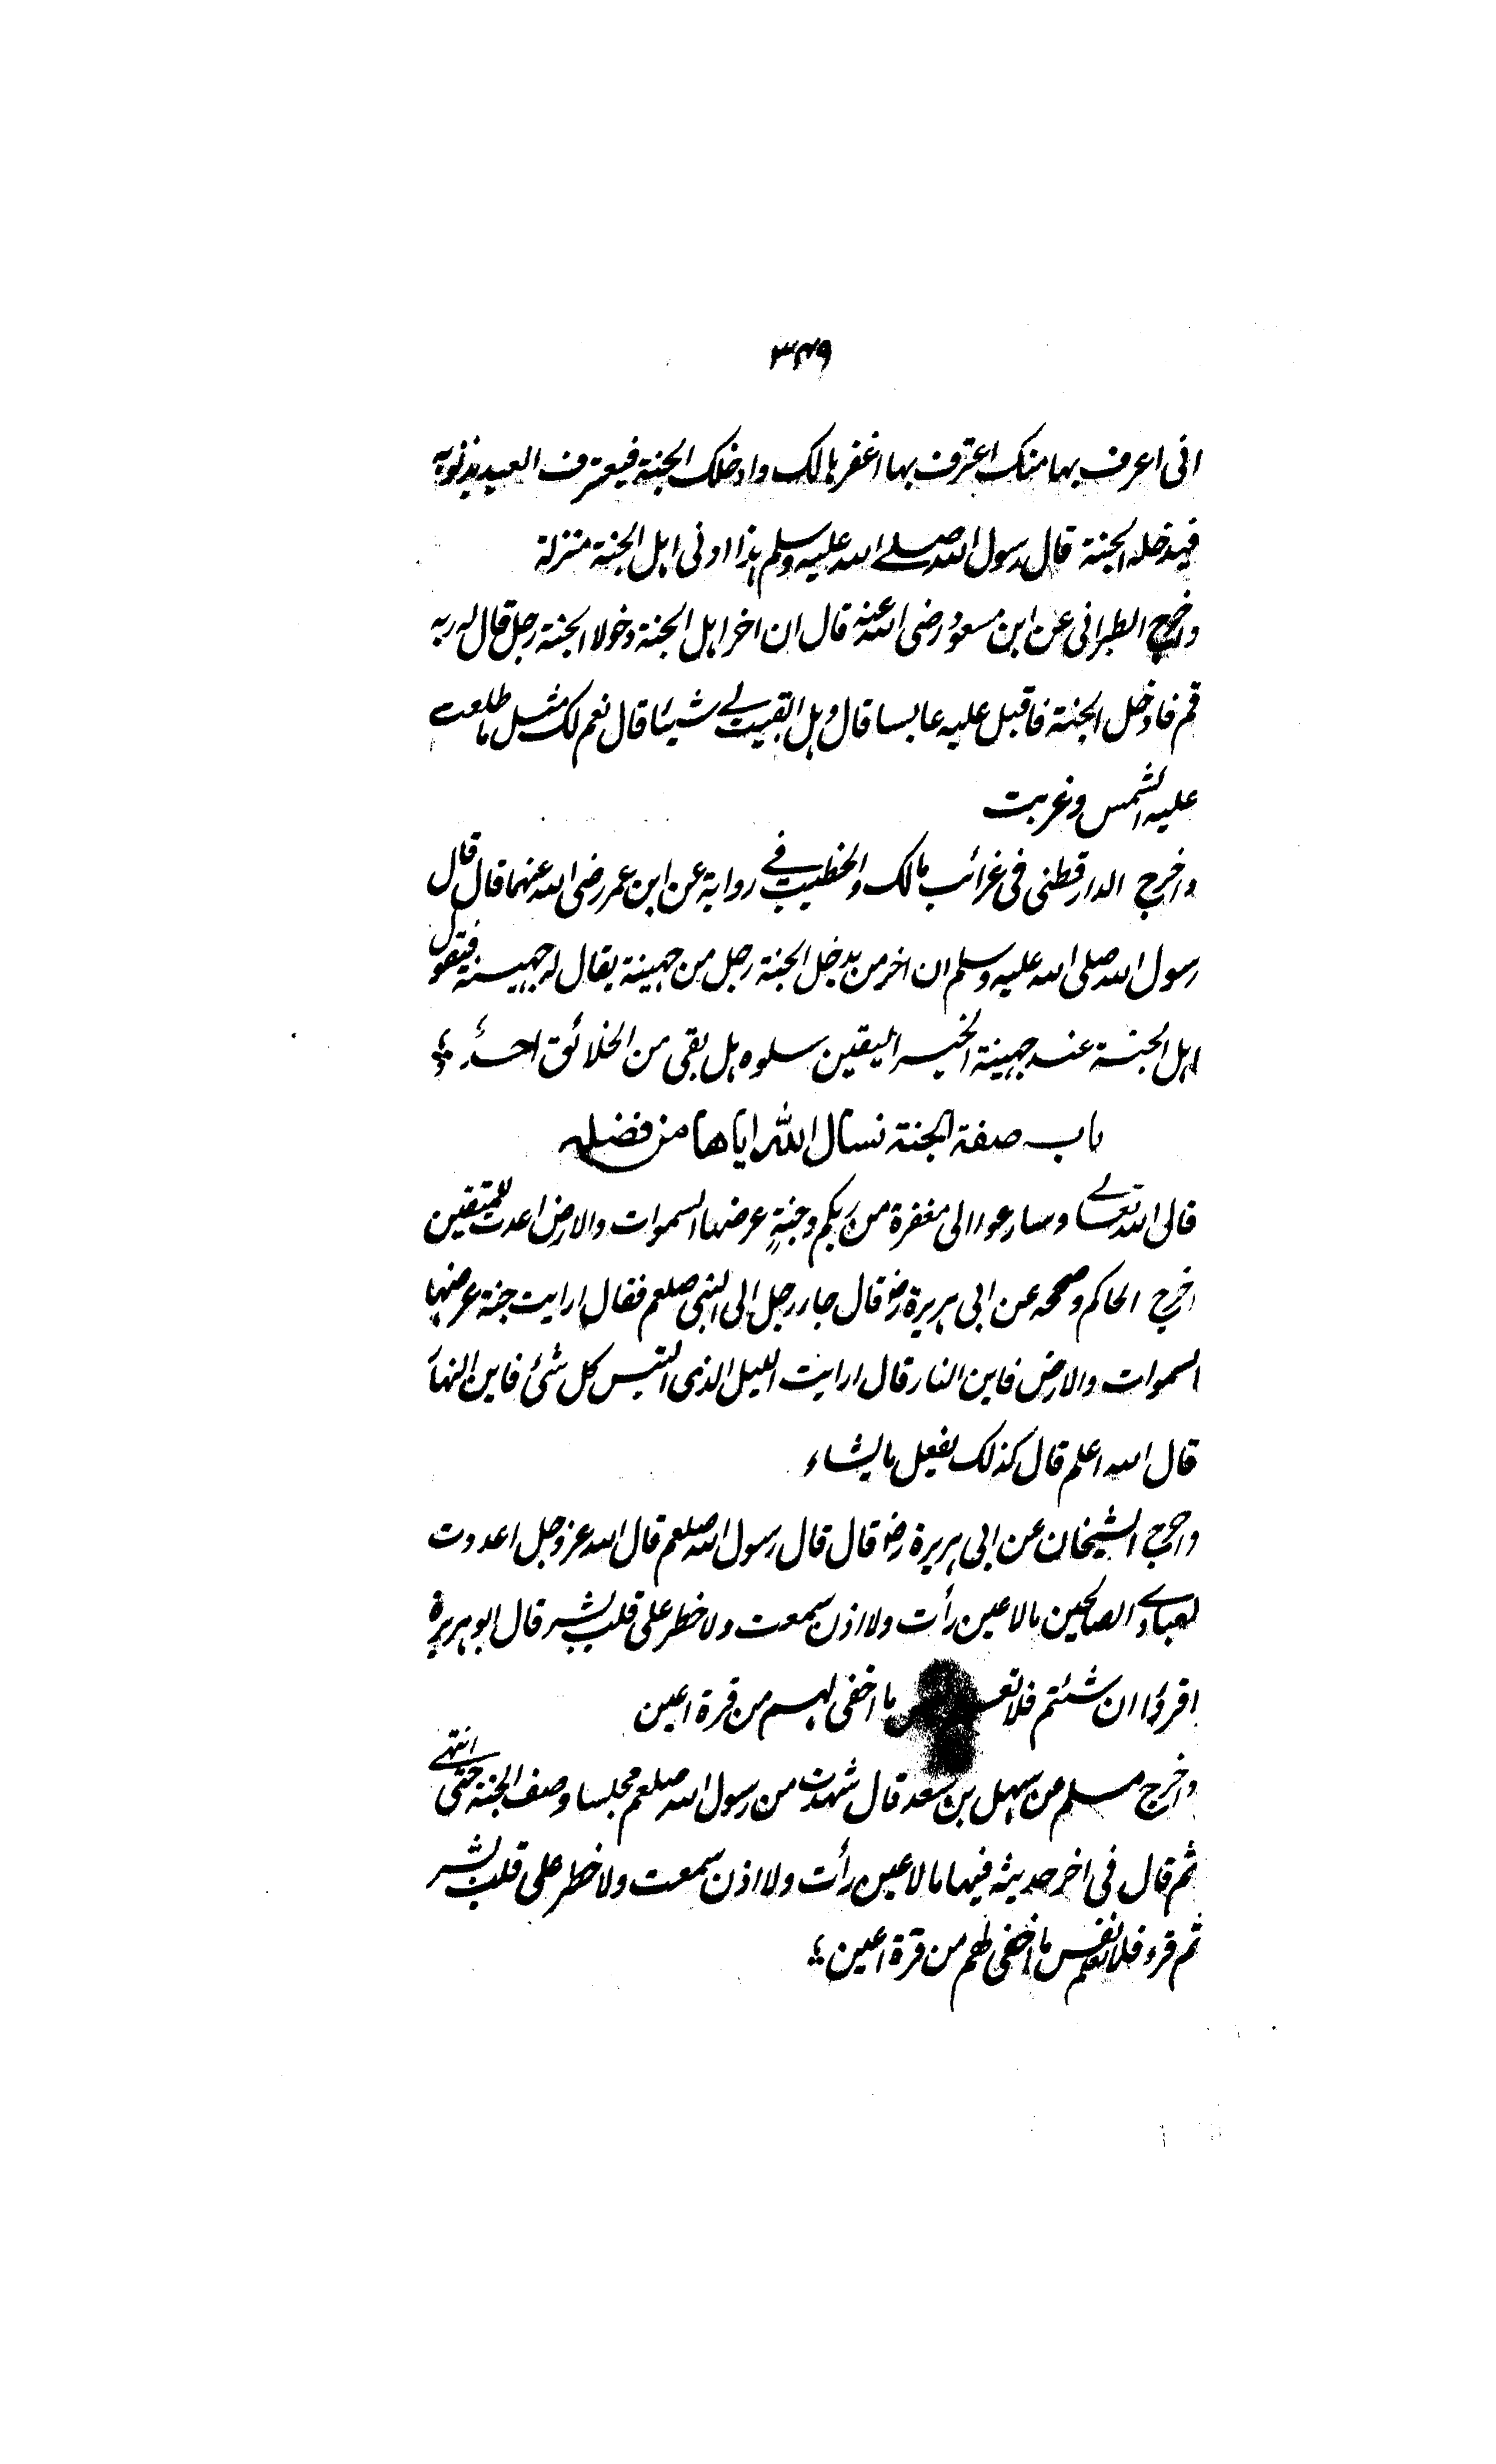 ۳۴۹
انی اعرف بها منک اعترف بها اغفرها لک وادخلک الجنة فیعترف العبد بذنوبه
فیدخله الجنة قال رسول الله صلے الله علیه وسلم هذا ادنی اهل الجنة منزلة
واخرج الطبرانی عن ابن مسعود رضی الله عنه قال ان اخر اهل الجنة دخولا الجنة رجل قال له ربه
قم فادخل الجنة فاقبل علیه عابسا قال وهل ابقیت لے شیئا قال نعم لک مثل ما طلعت
علیه الشمس وغربت
واخرج الدارقطنی فی غرائب مالک والخطیب فے روایة عن ابن عمر رضی الله عنهما قال قال
رسول الله صلی الله علیه وسلم ان اخر من یدخل الجنة رجل من جهینة یقال له جهینة فیقول
اهل الجنة عند جهینة الخبر الیقین سلوه هل بقی من الخلائق احدٌ
باب صفة الجنة نسال الله ایاها من فضله
قال الله تعالے وسارعوا الی مغفرة من ربکم وجنةٍ عرضها السموات والارض اعدت للمتقین
اخرج الحاکم وصححه عن ابی هریرة رضو قال جاء رجل الی النبی صلعم فقال ارایت جنة عرضها
السموات والارض فاین النار قال ارایت اللیل الذی البس کل شئ فاین النهار
قال الله اعلم قال کذلک یفعل ما یشاء
واخرج الشیخان عن ابی هریرة رضو قال قال رسول الله صلعم قال الله عز وجل اعددت
لعبادے الصالحین ما لا عین رأت ولا اذن سمعت ولا خطر علی قلب بشر قال ابو هریرة
اقرؤا ان شئتم فلا تعلم نفس ما اخفی لهم من قرة اعین
واخرج مسلم من سهل بن سعد قال شهدت من رسول الله صلعم مجلسا وصف الجنة حتی انتهے
ثم قال فی اخر حدیثه فیها ما لا عین رأت ولا اذن سمعت ولا خطر علی قلب بشر
ثم قرء فلا تعلم نفس ما اخفی لهم من قرة اعین